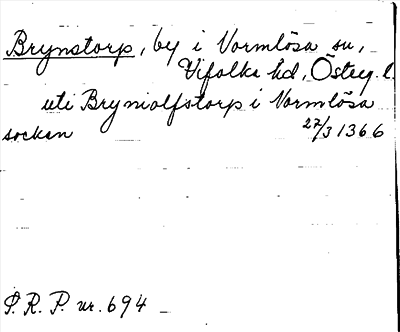 Brynstorp, by i Normlösa sn,
Vifolka hd, Österg. l.
uti Bryniolfstorp i Normlösa
socken 27/3 1366
S. R. P. nr. 694